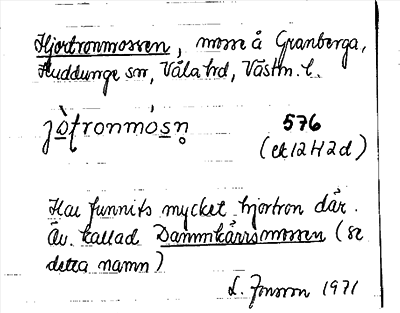 Hjortronmossen, mosse å Granberga,
Huddunge sn, Våla hd, Västm. l.
jòtronmósn̥
576
(ek 12 H 2 d)
Har funnits mycket hjortron där.
Äv. kallad Dammkärrsmossen (se
detta namn)
L. Jonsson 1971